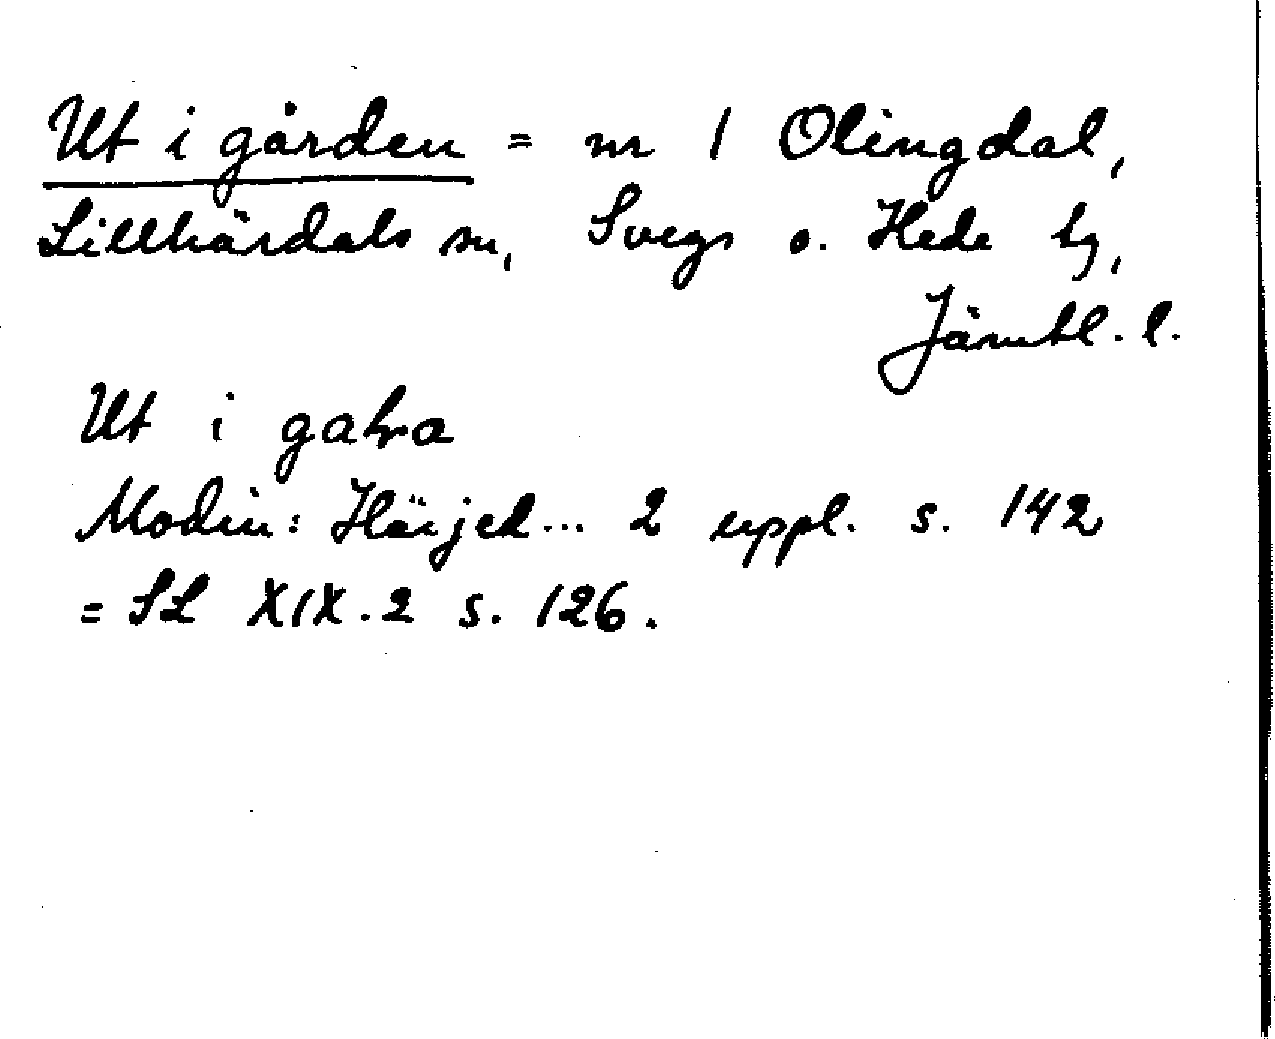 Ut i gården = nr 1 Olingdal,
Lillhärdals sn, Svegs o. Hede tg,
Jämtl. l.
Ut i
Modin: Härjed... 2 uppl. s. 142
= SL XIX.2 s. 126.